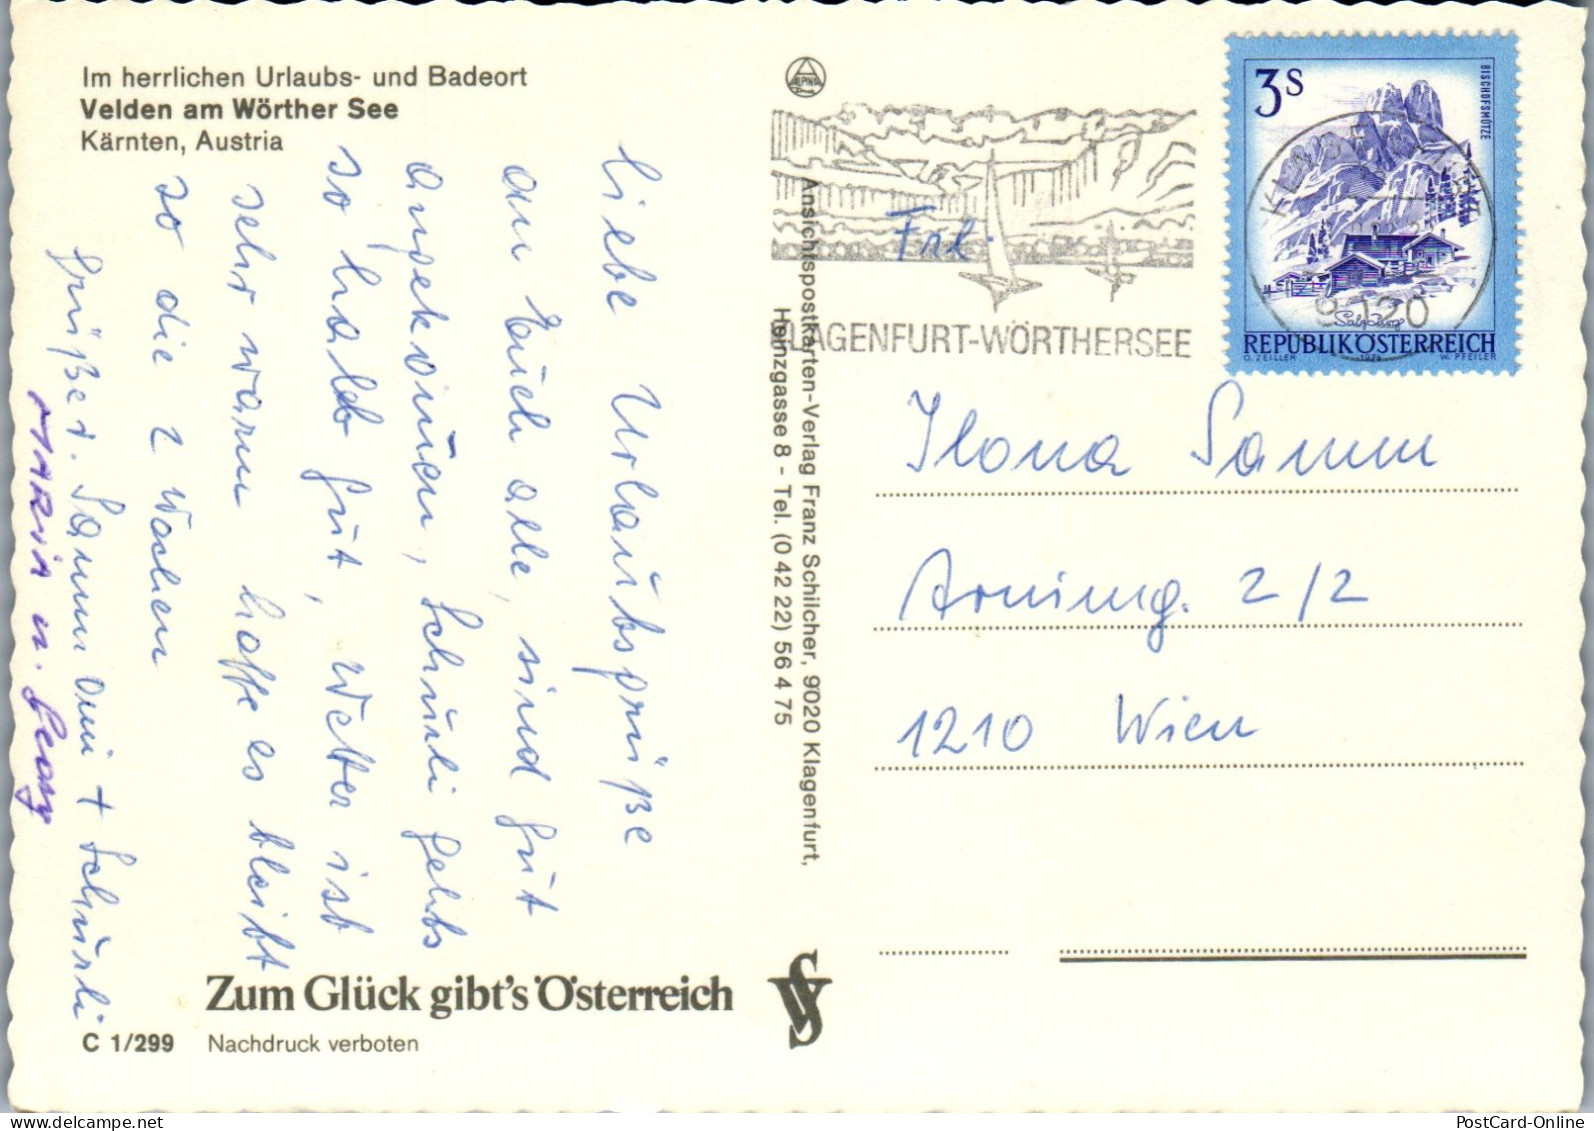 Im herrlichen Urlaubs- und Badeort
Velden am Wörther See
Kärnten, Austria
liebe Urlaubsgrüße
an Euch alle, sind gut
angekommen, Schnurli gehts
so halb gut, Wetter ist
sehr warm hoffe es bleibt
so die 2 Wochen
Grüße v. Samm Omi + Schnurli
MARIA u. Georg
Zum Glück gibt's Österreich
C 1/299 Nachdruck verboten
Ansichtspostkarten-Verlag Franz Schilcher, 9020 Klagenfurt,
Heinzgasse 8 - Tel. (0 42 22) 56 4 75
KLAGENFURT-WÖRTHERSEE
3S
BISCHOFSMÜTZE
Salzburg
REPUBLIK ÖSTERREICH
O. ZEILLER 1974 W. PFEILER
9020
Frl.
Ilona Samm
Arnimg. 2/2
1210 Wien
PostCard-Online
www.delcampe.net